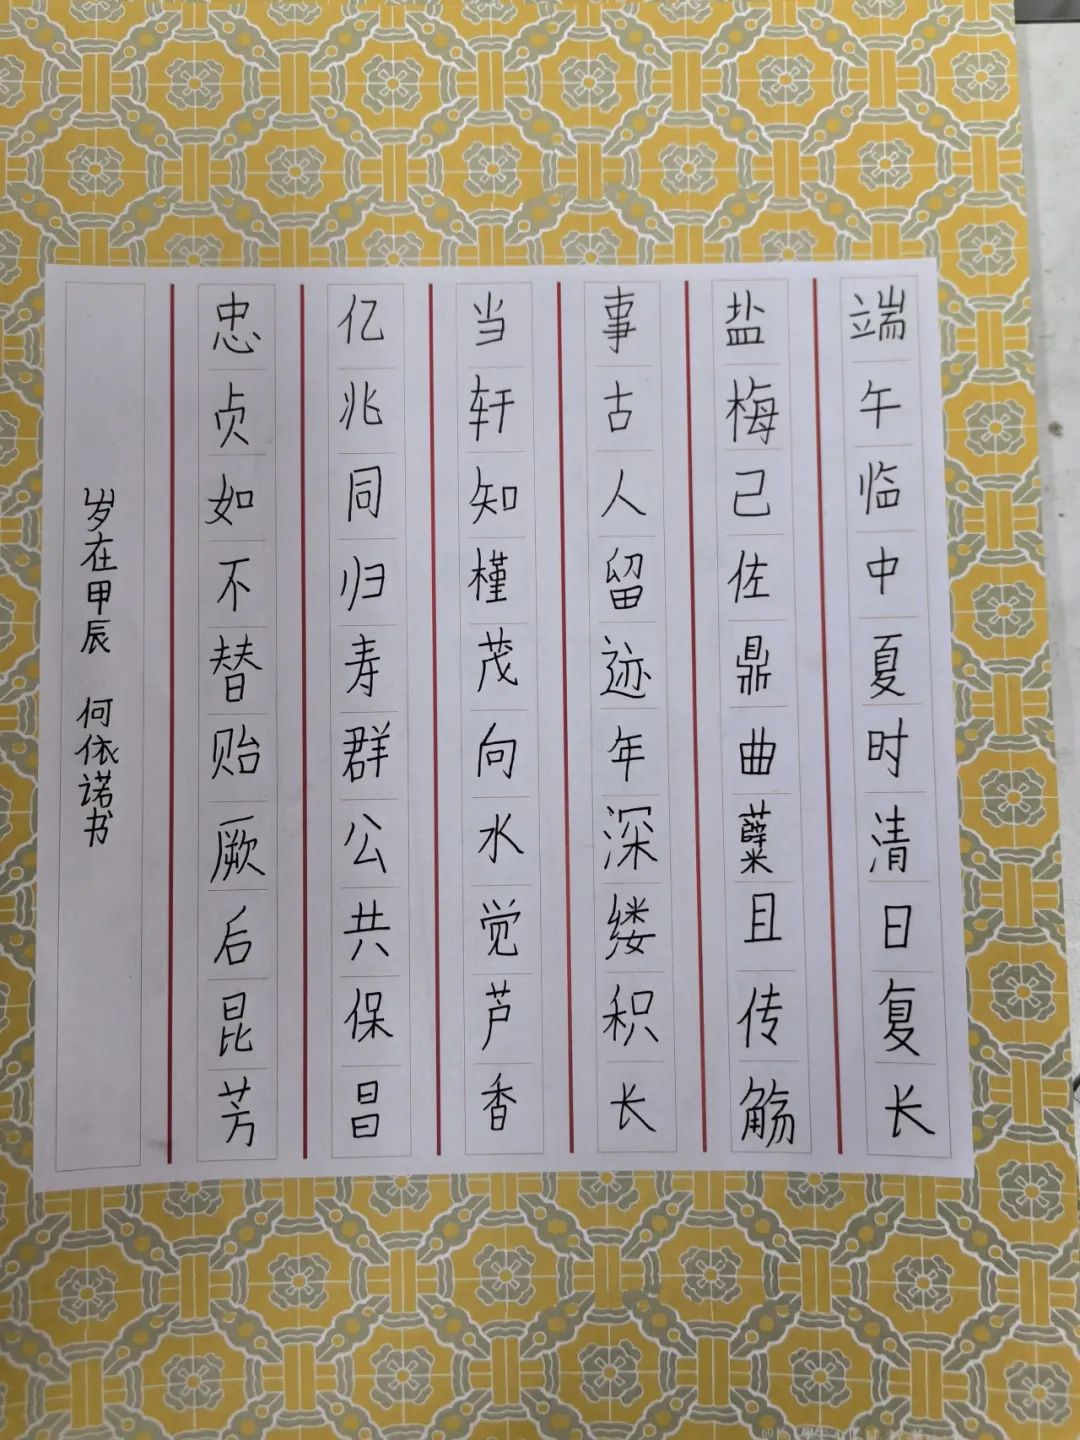 端午临中夏时清日复长
盐梅己佐鼎曲糵且传觞
事古人留迹年深缕积长
当轩知槿茂向水觉芦香
亿兆同归寿群公共保昌
忠贞如不替贻厥后昆芳
岁在甲辰 何依诺书